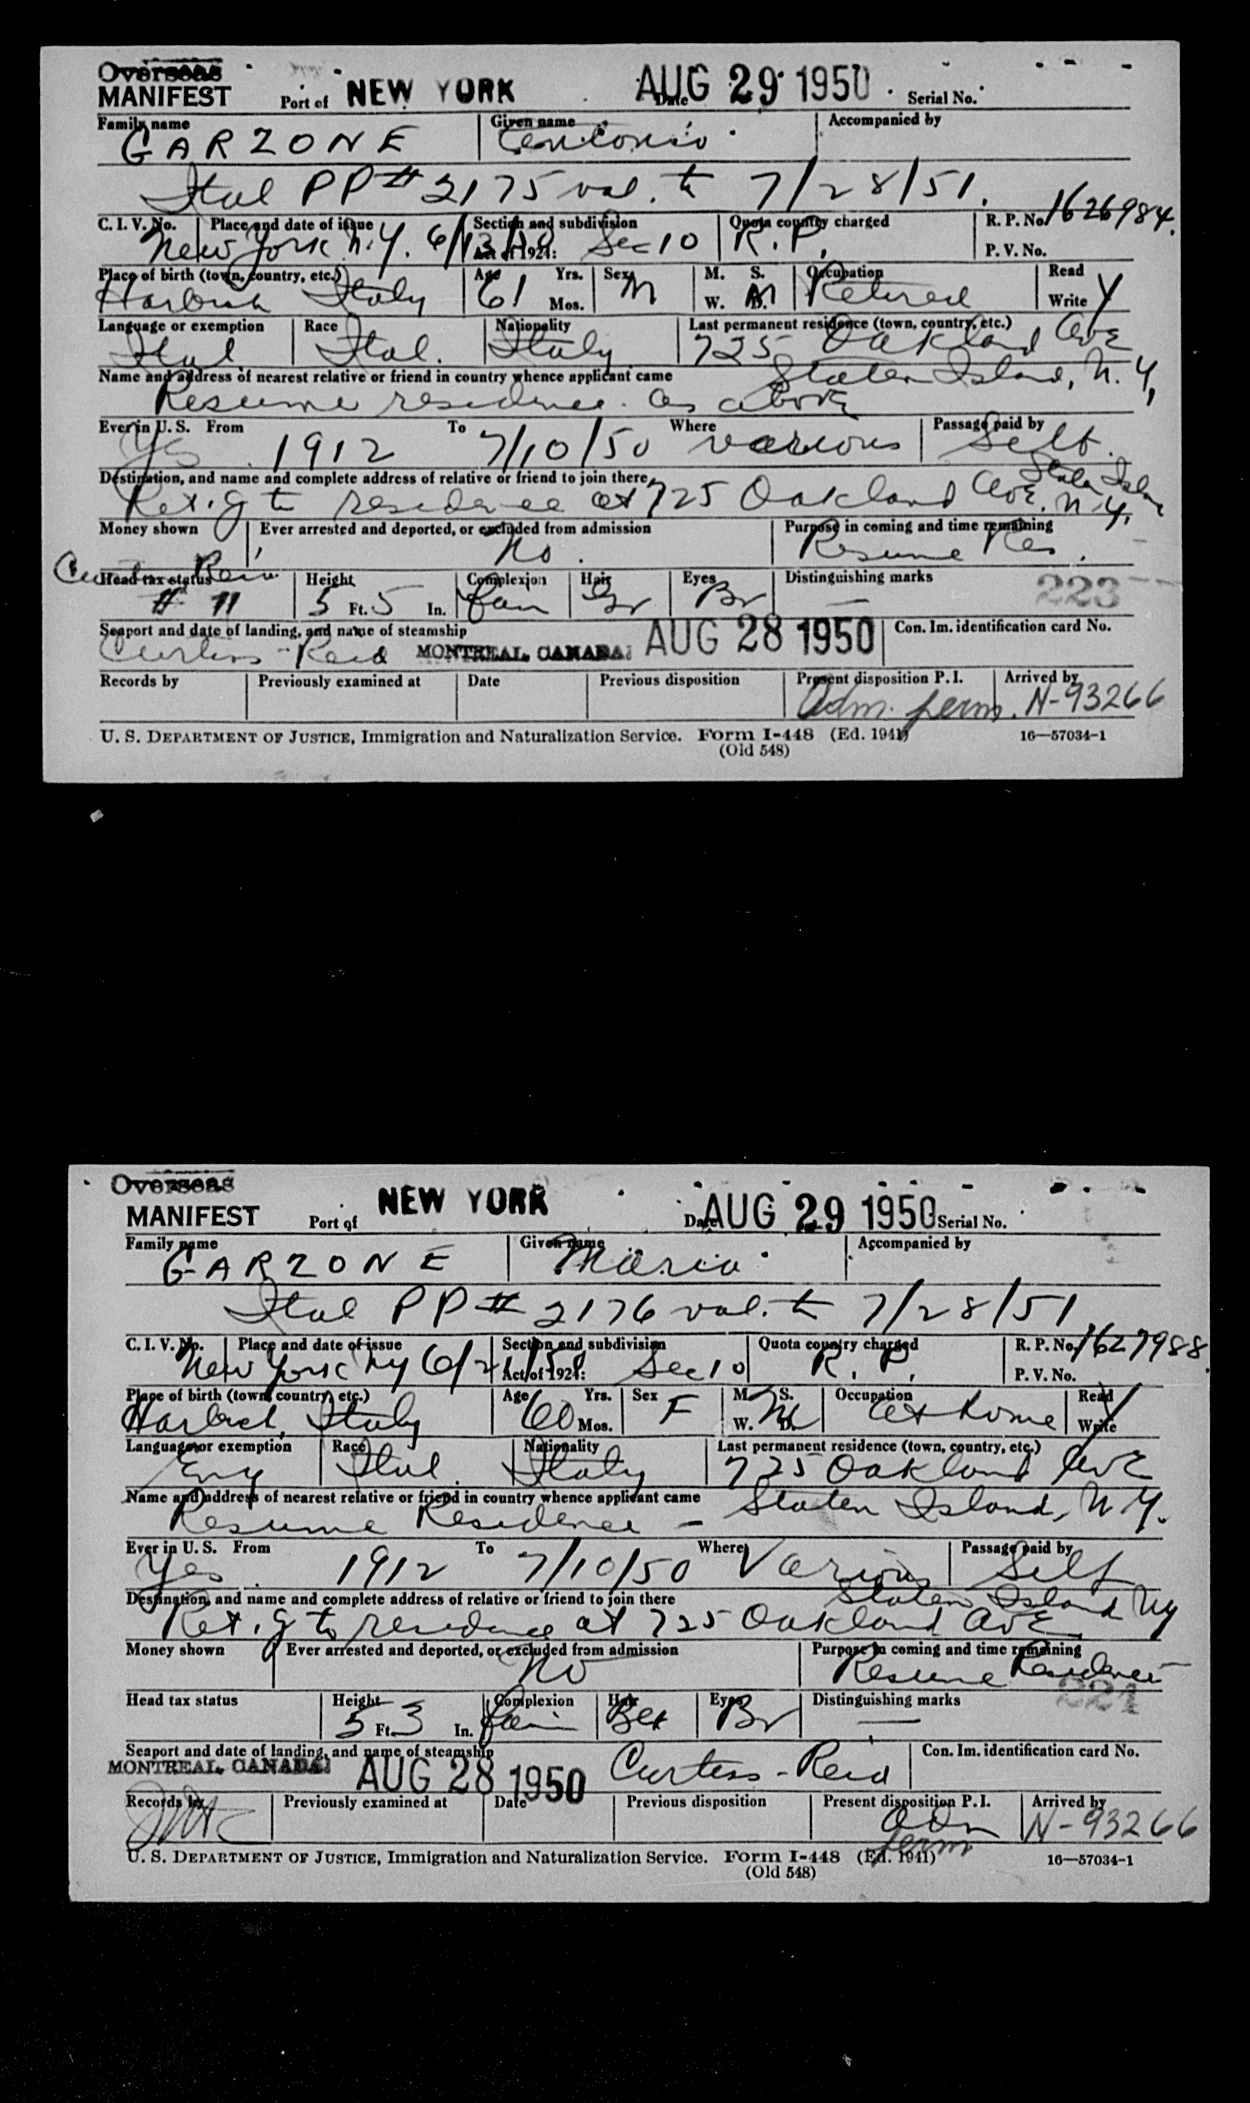 Overseas
MANIFEST Port of NEW YORK Date AUG 29 1950 Serial No.
Family name GARZONE Given name Antonio Accompanied by
Ital PP# 2175 val. to 7/28/51.
C. I. V. No. Place and date of issue New York N.Y. 6/13/50 Section and subdivision Act of 1924: Sec 10 Quota country charged R. P. R. P. No. 1626984.
P. V. No.
Place of birth (town, country, etc.) Italy Age 61 Yrs. Mos. Sex M M. S. W. D. M Occupation Retired Read Write Y
Language or exemption Ital Race Ital. Nationality Italy Last permanent residence (town, country, etc.) 725 Oakland Ave
Staten Island, N. Y.
Name and address of nearest relative or friend in country whence applicant came
Resume residence as above
Ever in U. S. Yes From 1912 To 7/10/50 Where various Passage paid by Self.
Destination, and name and complete address of relative or friend to join there
Ret.g to residence at 725 Oakland Ave. Staten Island N.Y.
Money shown Ever arrested and deported, or excluded from admission No. Purpose in coming and time remaining Resume Res.
Head tax status # 11 Height 5 Ft. 5 In. Complexion Fair Hair Gr Eyes Br Distinguishing marks — 223
Seaport and date of landing, and name of steamship
Curtiss-Reid MONTREAL, CANADA: AUG 28 1950 Con. Im. identification card No.
Records by Previously examined at Date Previous disposition Present disposition P. I. Adm. perm. Arrived by N-93266
U. S. DEPARTMENT OF JUSTICE, Immigration and Naturalization Service. Form I-448 (Ed. 1941) 16—57034-1
(Old 548)
Overseas
MANIFEST Port of NEW YORK Date AUG 29 1950 Serial No.
Family name GARZONE Given name Maria Accompanied by
Ital PP# 2176 val. to 7/28/51
C. I. V. No. Place and date of issue New York NY Section and subdivision Act of 1924: Sec 10 Quota country charged R. P. R. P. No. 1627988.
P. V. No.
Place of birth (town, country, etc.) Italy Age 60 Yrs. Mos. Sex F M. S. W. D. M Occupation at home Read Write Y
Language or exemption Eng Race Ital. Nationality Italy Last permanent residence (town, country, etc.) 725 Oakland Ave
Staten Island, N.Y.
Name and address of nearest relative or friend in country whence applicant came
Resume Residence —
Ever in U. S. Yes. From 1912 To 7/10/50 Where Various Passage paid by Self
Destination, and name and complete address of relative or friend to join there Staten Island NY
Ret.g to residence at 725 Oakland Ave
Money shown Ever arrested and deported, or excluded from admission No Purpose in coming and time remaining Resume Residence
Head tax status Height 5 Ft. 3 In. Complexion Fair Hair Blk Eyes Br Distinguishing marks — 224
Seaport and date of landing, and name of steamship
MONTREAL, CANADA: AUG 28 1950 Curtiss-Reid Con. Im. identification card No.
Records by Previously examined at Date Previous disposition Present disposition P. I. Adm perm Arrived by N-93266
U. S. DEPARTMENT OF JUSTICE, Immigration and Naturalization Service. Form I-448 (Ed. 1941) 16—57034-1
(Old 548)